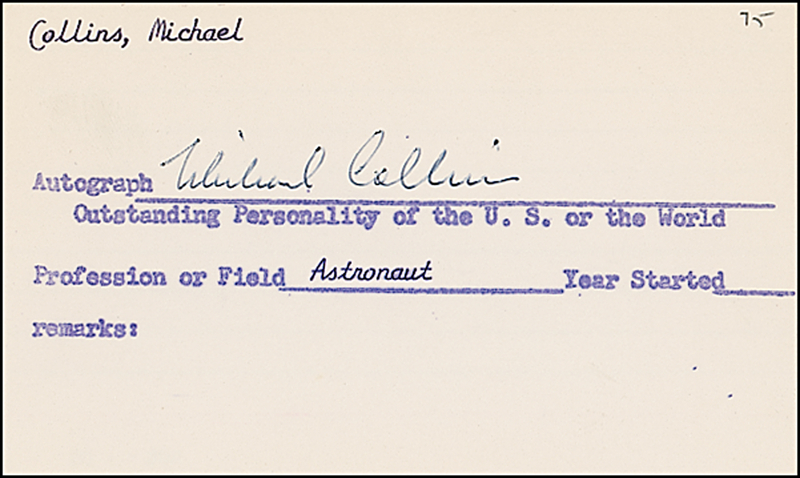 Collins, Michael 75
Autograph Michael Collins
Outstanding Personality of the U. S. or the World
Profession or Field Astronaut Year Started
remarks: